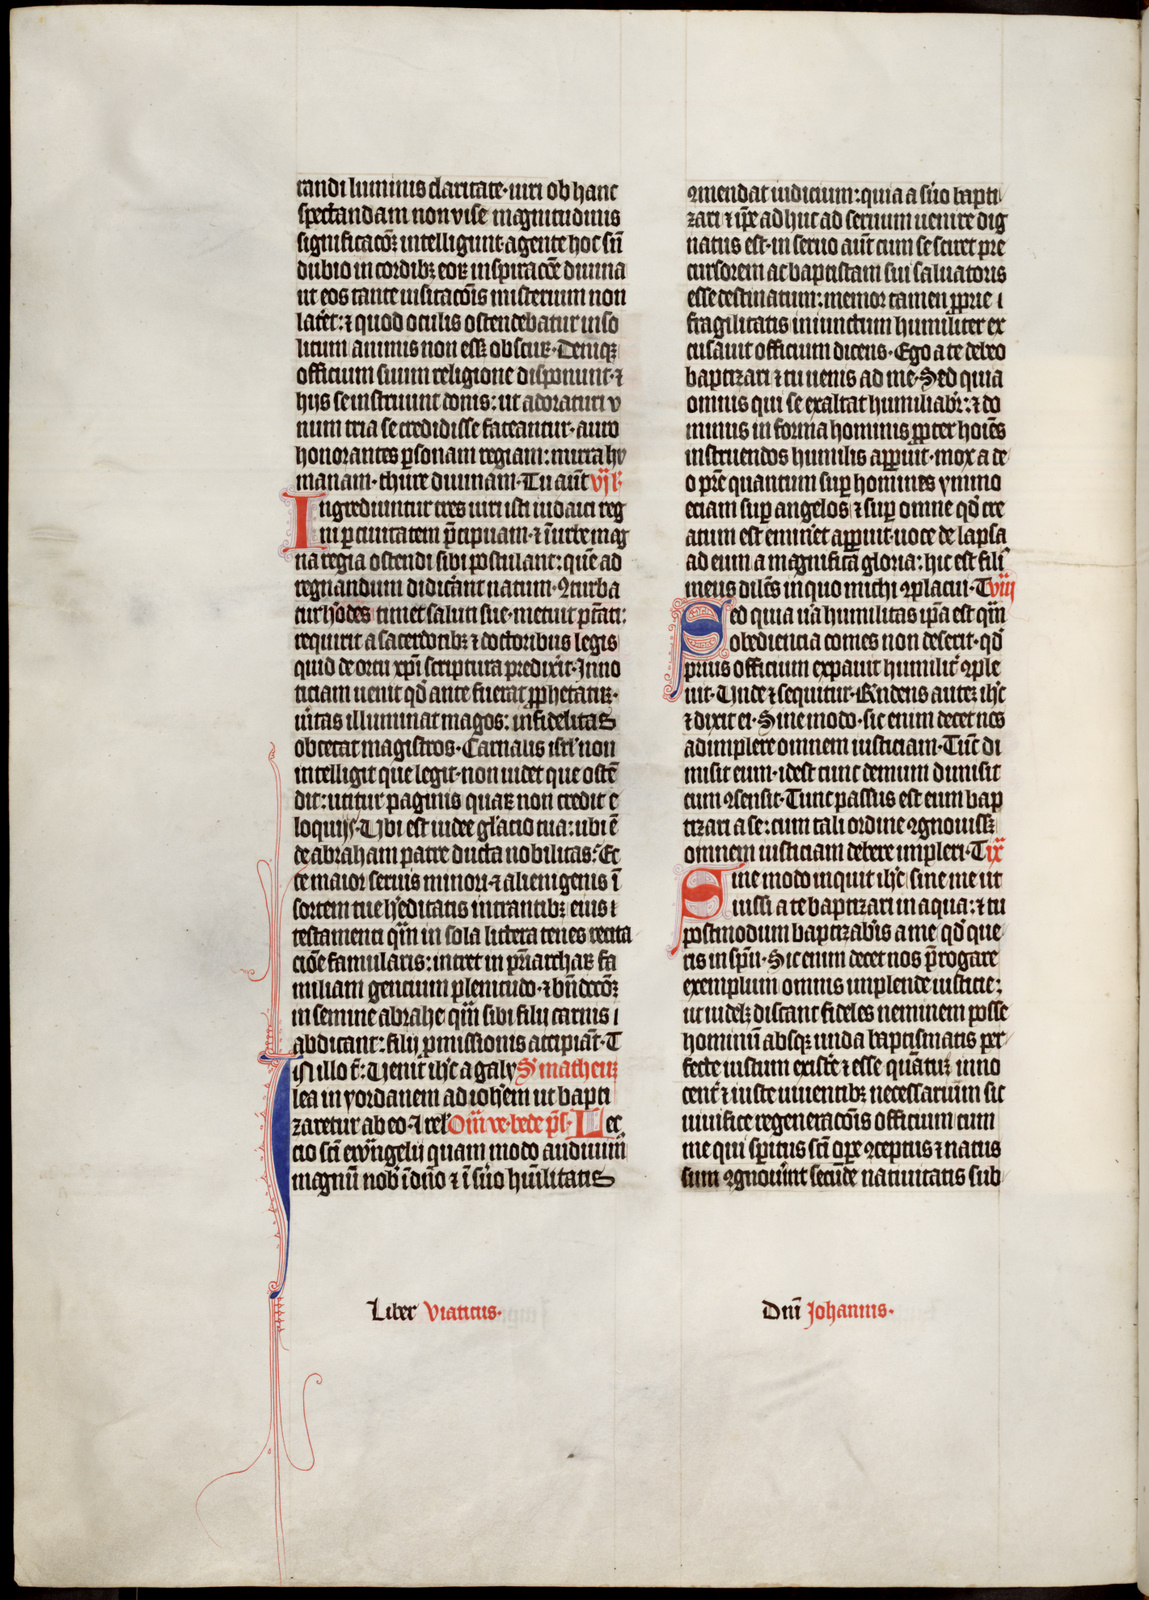 tandi luminis claritate· uiri ob hanc
spectandam non vise magnitudinis
significacōꝫ intelligunt· agente hoc sn̄
dubio in cordibꝫ eoꝝ inspiracōe diuina
ut eos tante uisitacōis misterium non
lateret: ⁊ quod oculis ostendebatur inso
litum animis non esset obscuꝝ· Deniqꝫ
officium suum religione disponunt· ⁊
hijs se instruunt donis: ut adoraturi v
num tria se credidisse fateantur· auro
honorantes ꝑsonam regiam: mirra hu
manam· thure diuinam· Tu aut̄ vij l·
Ingrediuntur tres uiri isti iudaici reg
ni ꝑ ciuitatem p̄cipuam· ⁊ in urbe mag
na regia ostendi sibi postulant: quē ad
regnandum didicerant natum· Ꝯturba
tur h̓odes timet saluti sue· metuit p̄tāti:
requirit a sacerdotibꝫ ⁊ doctoribus legis
quid de ortu xp̄i scriptura predixit· Inno
ticiam uenit qd̓ ante fuerat ꝓphetatuꝝ·
u̓itas illuminat magos: infidelitas
obcecat magistros· Carnalis isrl̓ non
intelligit que legit· non uidet que ostē
dit: utitur paginis quaꝝ non credit e
loquijs· Ubi est iudee gl̓acio tua: ubi ē
de abraham patre ducta nobilitas: Ec
ce maior seruis minori· ⁊ alienigenis ī
sortem tue h̓editatis intrantibꝫ eius
testamenti qm̄ in sola littera tenes recita
ciōe famularis: intret in pr̄iarchaꝝ fa
miliam gencium plenitudo· ⁊ bn̄dccōꝫ
in semine abrahe qm̄ sibi filij carnis
abdicant: filij ꝓmissionis accipiāt· T
In illo t̄: Uenit ih̄c a galy S· matheuꝫ
lea in yordanem ad ioh̄em ut bapti
zaretur ab eo· ⁊ rel̓ Om̄· ve· bede pr̄s· Lec
cio sc̄i ewngelij quam modo audiuim̄
magnū nob̄ in dn̄o ⁊ ī suo hu̓ilitatis
ꝯmendat iudicium: quia a suo bapti
zari ⁊ ip̄e adhuc ad seruum uenire dig
natus est· in seruo aut̄ cum se sciret pre
cursorem ac baptistam sui saluatoris
esse destinatum: memor tamen ꝓprie
fragilitatis iniunctum humiliter ex
cusauit officium dicens· Ego a te debeo
baptizari ⁊ tu uenis ad me· Sed quia
omnis qui se exaltat humiliabr̄: ⁊ do
minus in forma hominis ꝓpter hoiēs
instruendos humilis apparuit· mox a de
o prē quantum suꝑ homines ymmo
eciam suꝑ angelos ⁊ suꝑ omne qd̓ cre
atum est emineret apparuit· uoce delapsa
ad eum a magnifica gloria: hic est fili᷒
meus dilc̄s in quo michi ꝯplacui· T viij
Sed quia u̓a humilitas ip̄a est qm̄
obediencia comes non deserit· qd̓
prius officium expauit humilit̓ ꝯple
uit· Unde ⁊ sequitur· Rn̄dens autem ih̄c
⁊ dixit ei· Sine modo· sic enim decet nos
adimplere omnem iusticiam· Tūc di
misit eum· idest tunc demum dimisit
cum ꝯsensit· Tunc passus est eum bap
tizari a se: cum tali ordine ꝯgnouiss̄
omnem iusticiam debere impleri· T ix
Sine modo inquit ih̄c sine me ut
iussi a te baptizari in aqua: ⁊ tu
postmodum baptizab̓is a me qd̓ que
ris in sp̄u· Sic enim decet nos p̄rogare
exemplum omnis implende iusticie:
ut uidelꝫ discant fideles neminem posse
hominū absqꝫ unda baptismatis per
fecte iustum existe̓ ⁊ esse quātuꝫ inno
cent̓ ⁊ iuste uiuentibꝫ necessarium sit
uiuifice regeneracōis officium cum
me qui spiritus sc̄i oꝑe ꝯceptus ⁊ natus
sum ꝯgnou̓int secūde natiuitatis sub
Liber Viaticus·
Dn̄i Johannis·